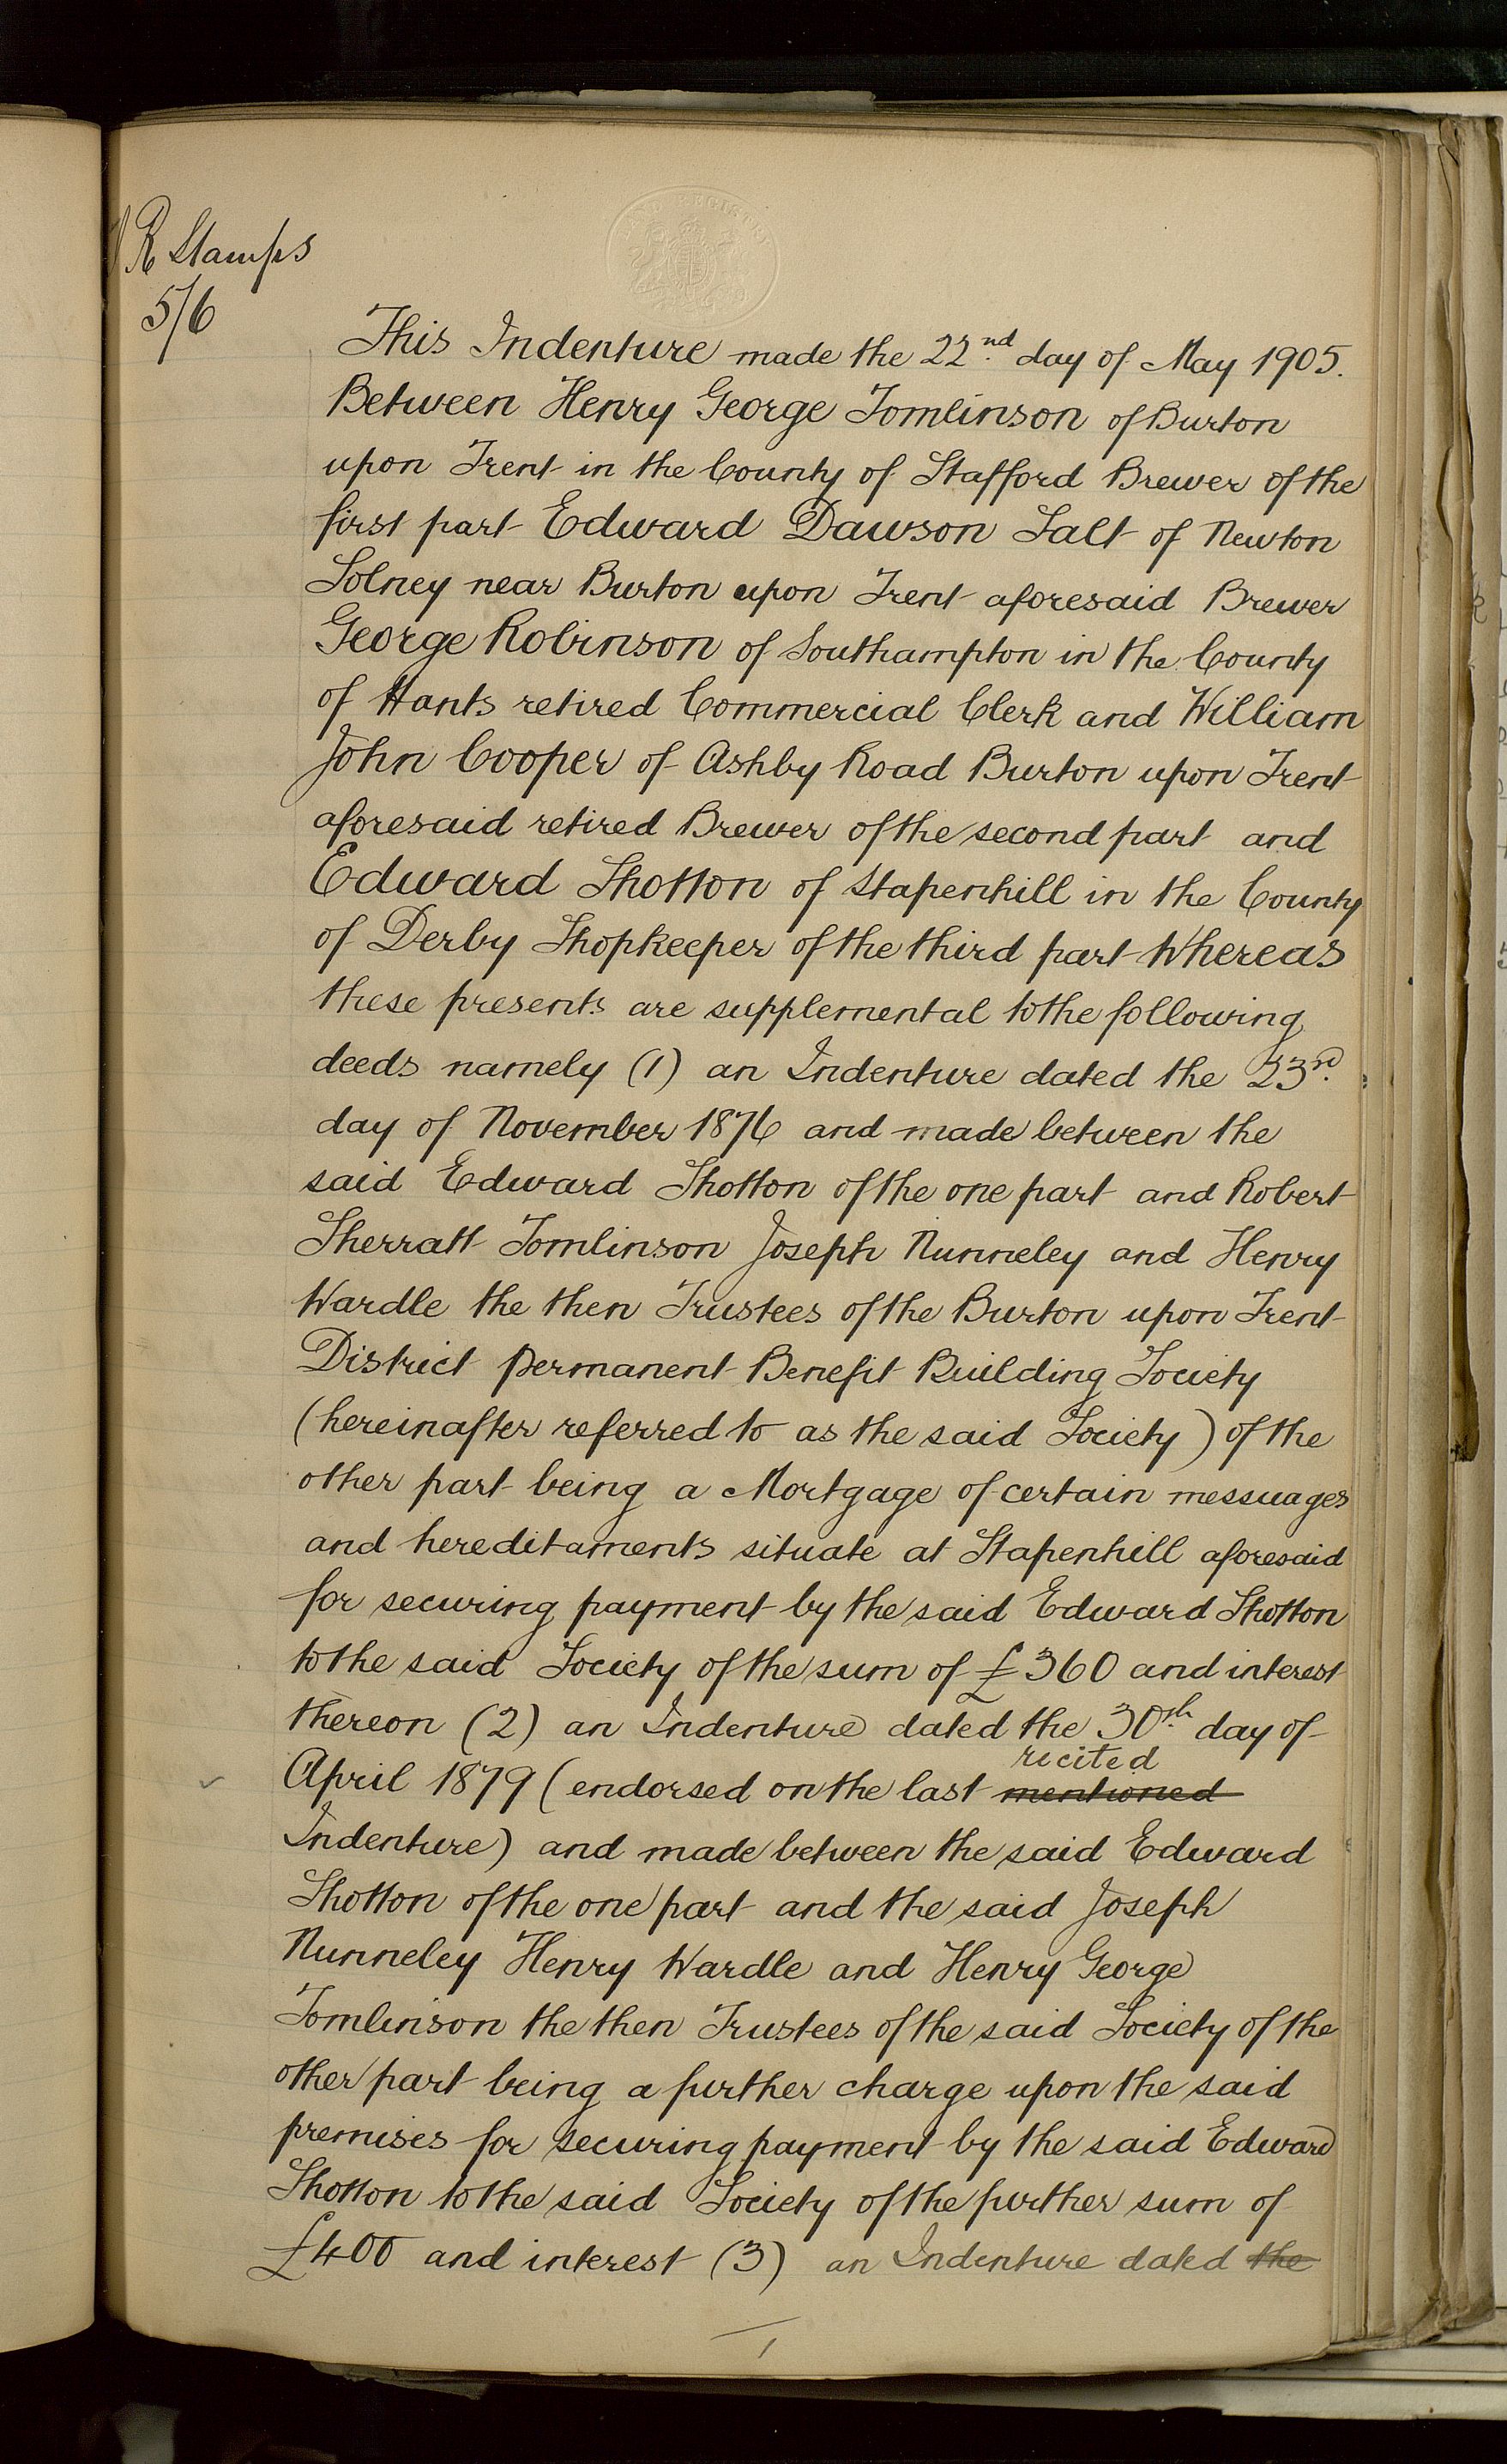 R Stamps
5/6
This Indenture made the 22nd day of May 1905.
Between Henry George Tomlinson of Burton
upon Trent in the County of Stafford Brewer of the
first part Edward Dawson Salt of Newton
Solney near Burton upon Trent aforesaid Brewer
George Robinson of Southampton in the County
of Hants retired Commercial Clerk and William
John Cooper of Ashby Road Burton upon Trent
aforesaid retired Brewer of the second part and
Edward Shotton of Stapenhill in the County
of Derby Shopkeeper of the third part Whereas
these presents are supplemental to the following
deeds namely (1) an Indenture dated the 23rd
day of November 1876 and made between the
said Edward Shotton of the one part and Robert
Sherratt Tomlinson Joseph Nunneley and Henry
Wardle the then Trustees of the Burton upon Trent
District Permanent Benefit Building Society
(hereinafter referred to as the said Society) of the
other part being a Mortgage of certain messuages
and hereditaments situate at Stapenhill aforesaid
for securing payment by the said Edward Shotton
to the said Society of the sum of £360 and interest
thereon (2) an Indenture dated the 30th day of
recited
April 1879 (endorsed on the last mentioned
Indenture) and made between the said Edward
Shotton of the one part and the said Joseph
Nunneley Henry Wardle and Henry George
Tomlinson the then Trustees of the said Society of the
other part being a further charge upon the said
premises for securing payment by the said Edward
Shotton to the said Society of the further sum of
£400 and interest (3) an Indenture dated the
1